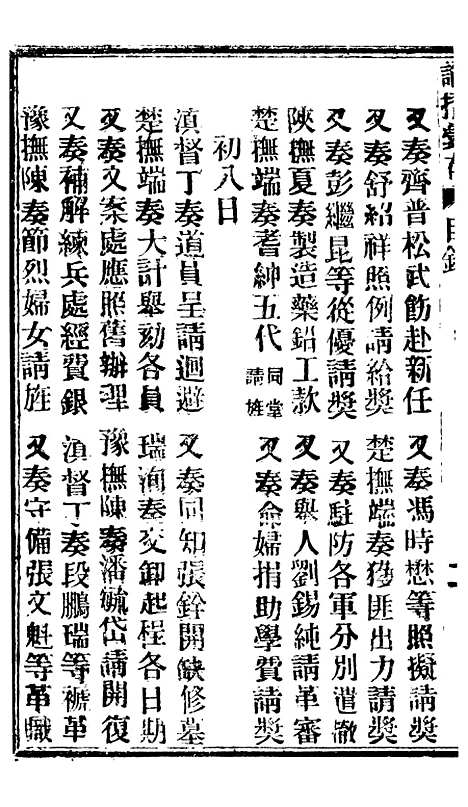 諭摺彙存 目錄
又奏齊普松武飭赴新任 又奏馮時懋等照擬請奬
又奏舒紹祥照例請給奬 楚撫端奏獲匪出力請奬
又奏彭繼昆等從優請奬 又奏駐防各軍分別遣撤
陝撫夏奏製造藥鉛工款 又奏舉人劉錫純請革審
楚撫端奏耆紳五代同堂請旌 又奏命婦捐助學費請奬
初八日
滇督丁奏道員呈請迴避 又奏同知張銓開缺修墓
楚撫端奏大計舉劾各員 瑞洵奏交卸起程各日期
又奏文案處應照舊辦理 豫撫陳奏潘毓岱請開復
又奏補解練兵處經費銀 滇督丁奏段鵬瑞等褫革
豫撫陳奏節烈婦女請旌 又奏守備張文魁等革職